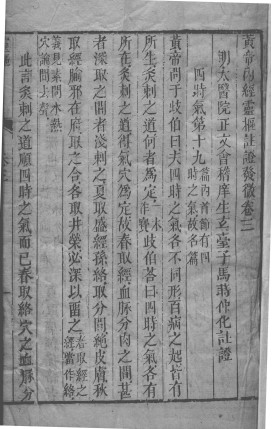 黃帝內經靈樞註證發微卷三
明太醫院正文會稽庠生玄臺子馬蒔仲化註證
四時氣第十九篇內首節有四時之氣故名篇
黃帝問于歧伯曰夫四時之氣各不同形百病之起皆有
所生灸刺之道何者為定一本作寶歧伯答曰四時之氣各有
所在灸刺之道得氣穴為定故春取經血脉分肉之間甚
者深取之間者淺刺之夏取盛經孫絡取分間絕皮膚秋
取經腧邪在府取之合冬取井滎必深以留之
義見素問水熱穴論
此言灸刺之道順四時之氣而已春取絡穴之血脉分